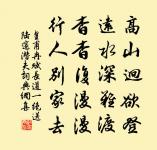 高山迥欲登
遠水深難渡
杳杳復漫漫
行人別家去
皇甫冉賦長道一絕送
陸邃潛夫詞典網喜